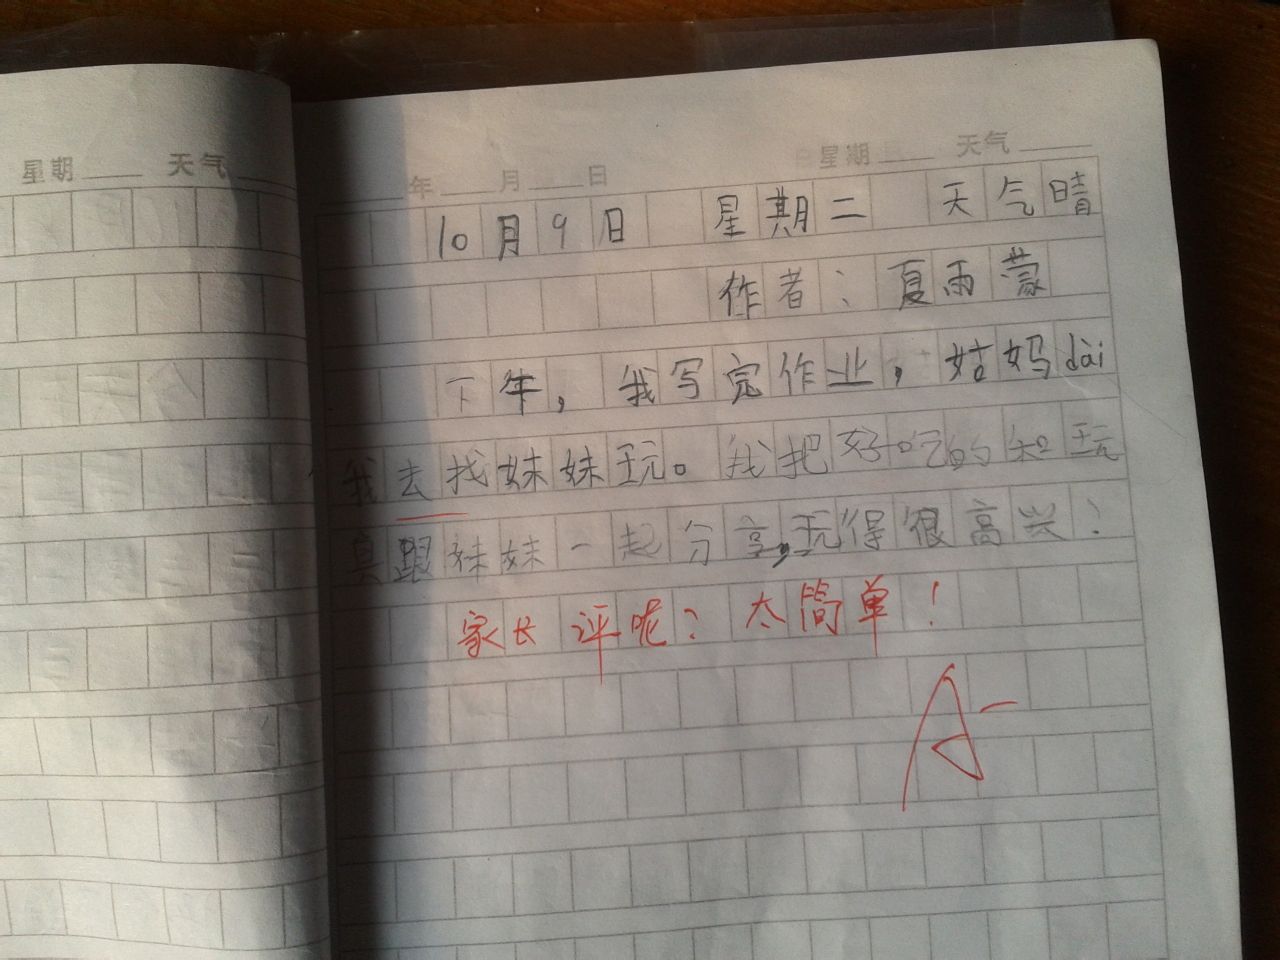 星期 天气
年 月 日 星期 天气
10月9日 星期二 天气晴
作者：夏雨蒙
下午，我写完作业，姑妈dài
我去找妹妹玩。我把好吃的和玩
具跟妹妹一起分享，玩得很高兴！
家长评呢？太简单！
A-